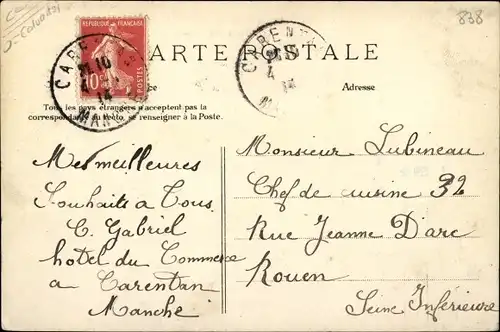 838
Calvados
RÉPUBLIQUE FRANÇAISE
10c
POSTES
CARENTAN
4
14
MANCHE
CARENTAN
4
14
CARTE POSTALE
Correspondance
Adresse
Tous les pays étrangers n'acceptent pas la
correspondance au recto, se renseigner à la Poste.
Mes meilleures
Souhaits a Tous
C. Gabriel
hotel du Commerce
a Carentan
Manche
Monsieur Lubineau
Chef de cuisine 32
Rue Jeanne Darc
Rouen
Seine Inférieure